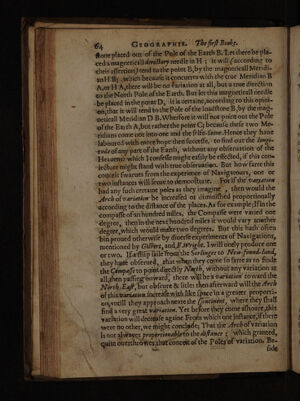 64 GEOGRAPHIE. The first Booke.
stone placed out of the Pole of the Earth B. Let there be pla-
ced a magneticall directory needle in H; it will (according to
their assertion) tend to the point B, by the magneticall Meridi-
an H B; which because it concurres with the true Meridian B
A, or H A, there will be no variation at all, but a true direction
to the North Pole of the Earth. But let this magneticall needle
be placed in the point D, it is certaine, according to this opini-
on, that it will tend to the Pole of the loadstone B, by the mag-
neticall Meridian D B. Wherefore it will not point out the Pole
of the Earth A, but rather the point C; because these two Meri-
dians come not into one and the selfe-same. Hence they have
laboured with once hope their successe, to find out the longi-
tude of any part of the Earth, without any observation of the
Heavens: which I confesse might easily be effected, if this con-
ceite might stand with true observation. But how farre this
conceit swarues from the experience of Navigatours, one or
two instances will serue to demonstrate. For if the variation
had any such certaine poles as they imagine, then would the
Arch of variation be increased or diminished proportionally
according to the distance of the places. As for example, If in the
compasse of an hundred miles, the Compasse were varied one
degree, then in the next hundred miles it would vary another
degree, which would make two degrees. But this hath often
bin proued otherwise by diverse experiences of Navigatours,
mentioned by Gilbert, and E. Wright. I will onely produce one
or two. If a ship saile from the Sorlinges to New-found-land,
they haue obserued, that when they come so farre as to finde
the Compasse to point directly North, without any variation at
all, then passing onward, there will be a variation toward the
North-East, but obscure & little: then afterward will the Arch
of this variation increase with like space in a greater propor-
tion, vntill they approach neere the Continent, where they shall
find a very great variation. Yet before they come ashoare, this
variation will decrease againe. From which one instance, if there
were no other, we might conclude; That the Arch of variation
is not alwayes proportionable to the distance: which granted,
quite ouerthrowes that conceit of the Poles of variation. Be-
side